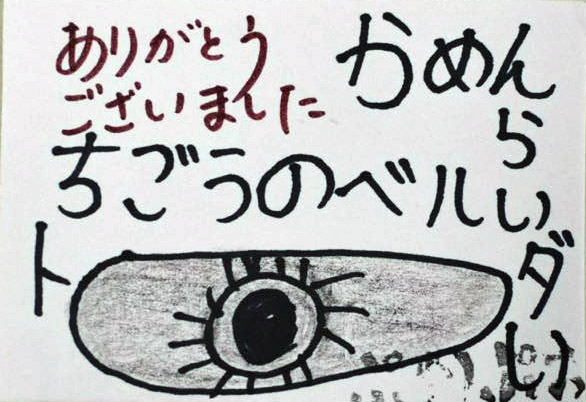 ありがとう
ございました
かめん
らいダい
ちごうのベル
ト